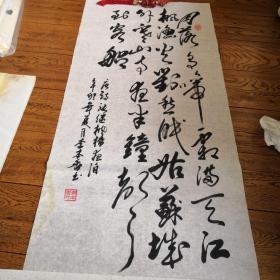 月落乌啼霜满天江
枫渔火对愁眠姑苏城
外寒山寺夜半钟声
到客船
唐诗张继枫桥夜泊
辛卯年夏月李